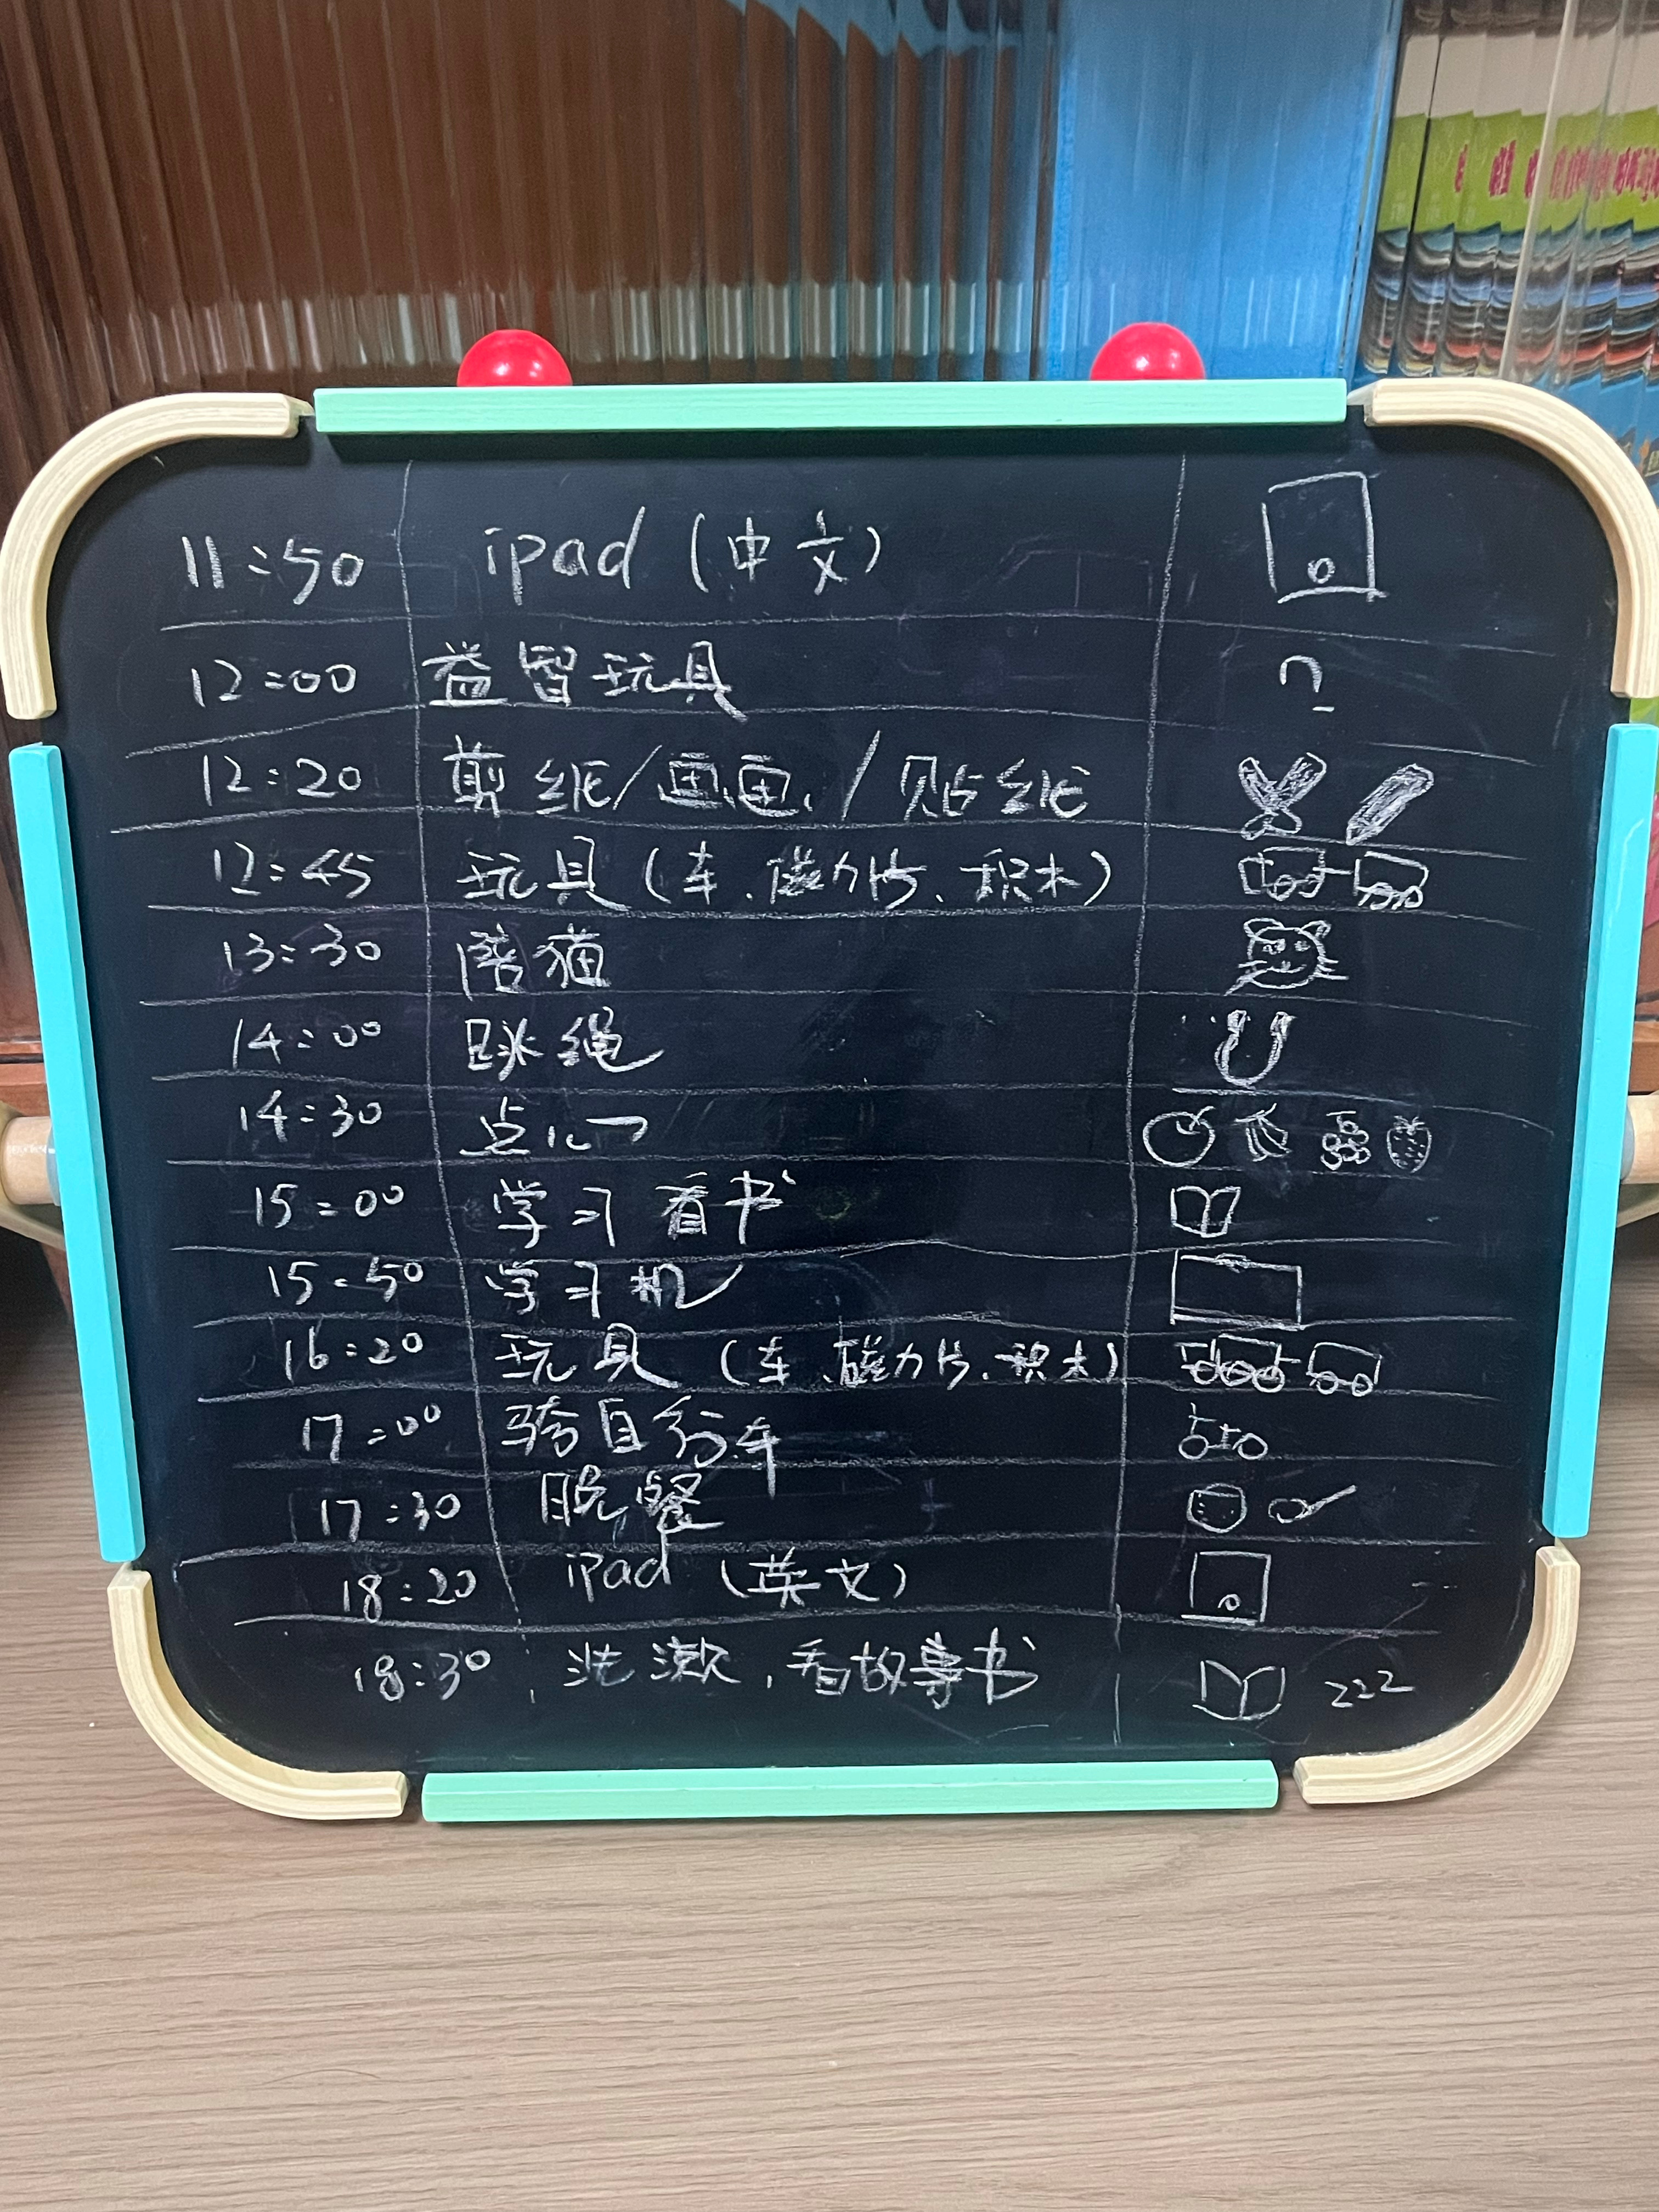 11:50 ipad (中文)
12:00 益智玩具 ?
12:20 剪纸/画画/贴纸
12:45 玩具(车、磁力片、积木)
13:30 陪猫
14:00 跳绳
14:30 点心
15:00 学习 看书
15:50 学习机
16:20 玩具 (车、磁力片、积木)
17:00 骑自行车
17:30 晚餐
18:20 ipad (英文)
18:30 洗漱,看故事书 zzz